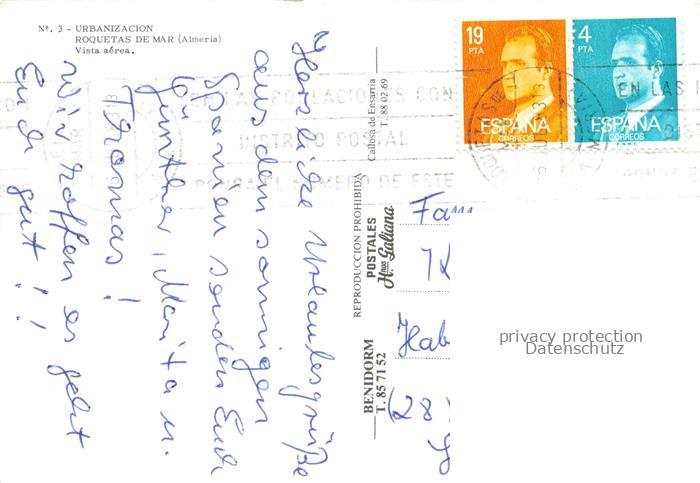 Nº. 3 - URBANIZACION
ROQUETAS DE MAR (Almeria)
Vista aérea.
Herzliche Urlaubsgrüße
aus dem sonnigen
Spanien senden Euch
Günther, Marita u.
Thomas!
Wir hoffen es geht
Euch gut!!
Callosa de Ensarria
T. 88 02 69
REPRODUCCION PROHIBIDA
POSTALES
Hnos Galiana
BENIDORM
T. 85 71 52
19
PTA
ESPAÑA
CORREOS
4
PTA
ESPAÑA
CORREOS
EN LAS POBLACIONES CON
DISTRITO POSTAL
PONGA EL NUMERO DE ESTE
EN LAS
Fam
Hab
(28
privacy protection
Datenschutz